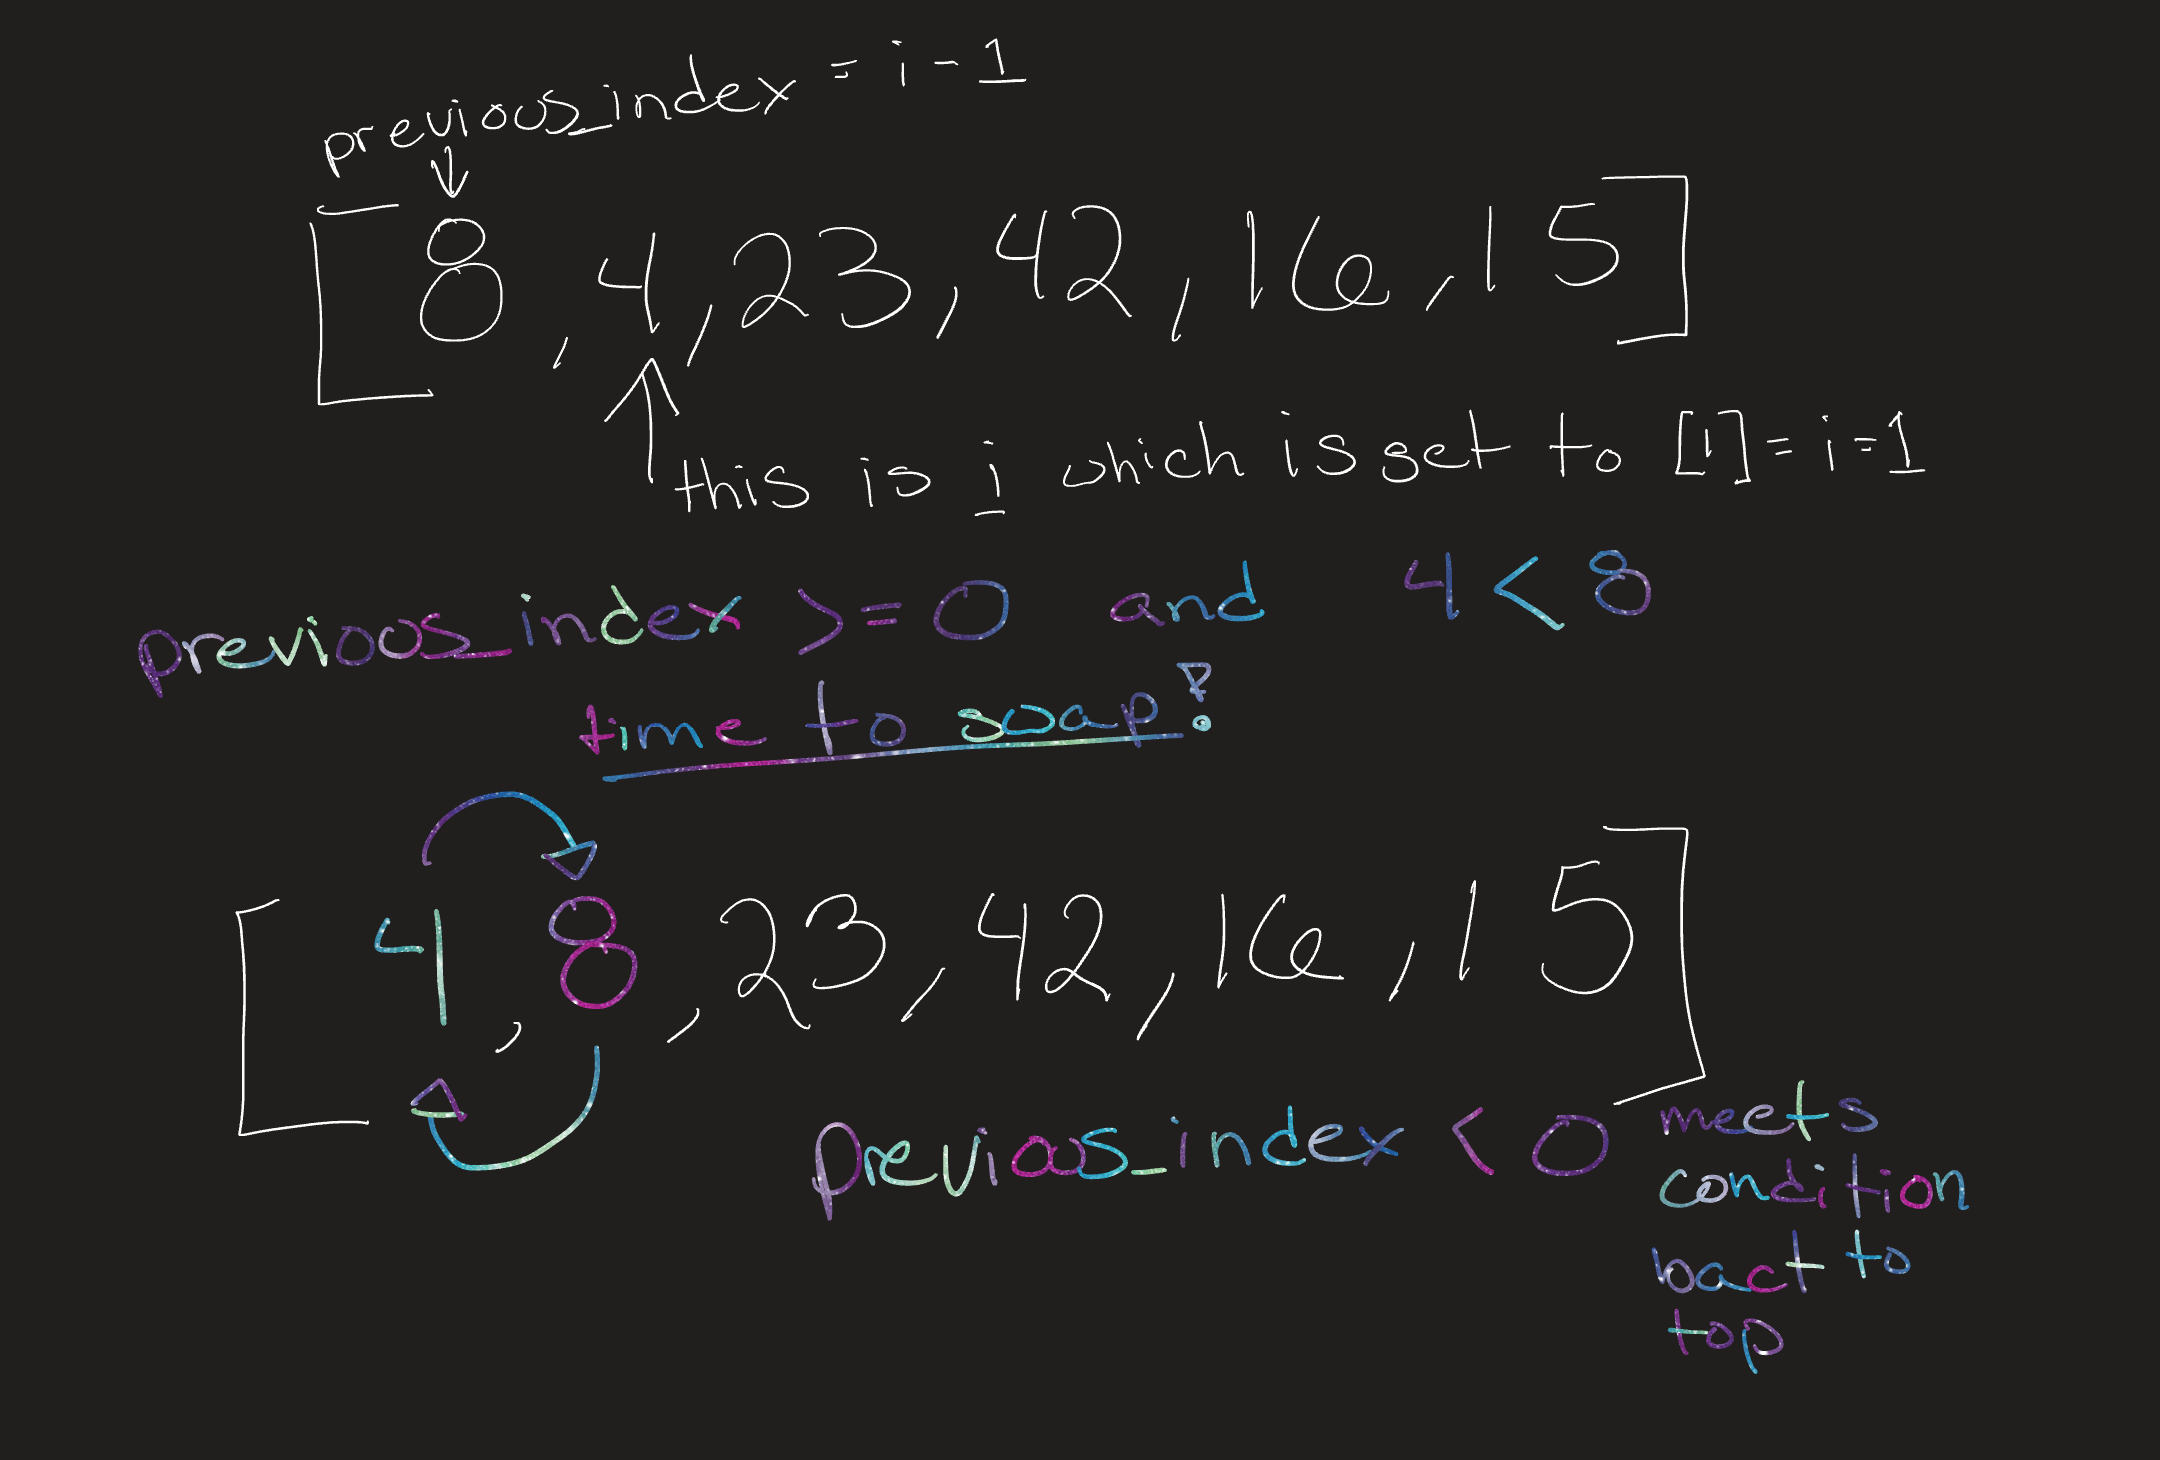 previous_index = i - 1
[8, 4, 23, 42, 16, 15]
this is i which is set to [1] = i = 1
previous_index >= 0 and 4 < 8
time to swap!
[4, 8, 23, 42, 16, 15]
previous_index < 0 meets
condition
bact to
top